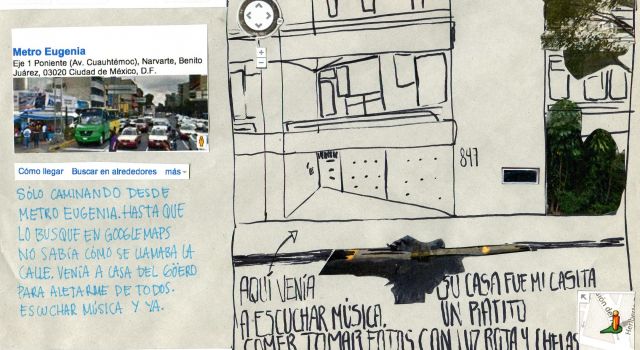 Metro Eugenia
Eje 1 Poniente (Av. Cuauhtémoc), Narvarte, Benito
Juárez, 03020 Ciudad de México, D.F.
Cómo llegar Buscar en alrededores más
SÓLO CAMINANDO DESDE
METRO EUGENIA. HASTA QUE
LO BUSQUE EN GOOGLEMAPS
NO SABÍA CÓMO SE LLAMABA LA
CALLE. VENÍA A CASA DEL GÜERO
PARA ALEJARME DE TODOS.
ESCUCHAR MÚSICA Y YA.
847
AQUÍ VENÍA
A ESCUCHAR MÚSICA.
COMER TOMAR FOTOS CON LUZ ROJA Y CHELAS
SU CASA FUE MI CASITA
UN RATITO